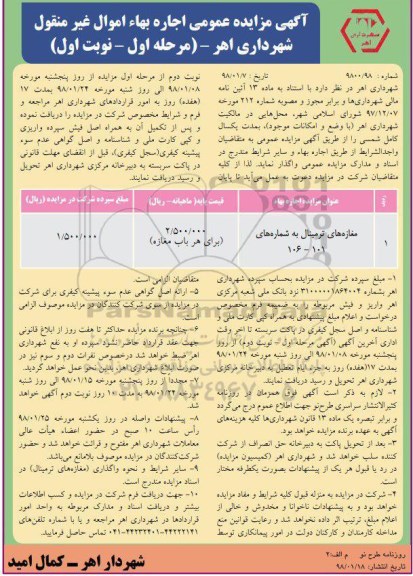 آگهی مزایده عمومی اجاره بهاء اموال غیر منقول
شهرداری اهر – (مرحله اول – نوبت اول)
شماره : ۹۸۰۰/۹۸
تاریخ : ۹۸/۰۱/۷
شهرداری اهر در نظر دارد با استناد به ماده ۱۳ آئین نامه
مالی شهرداری‌ها و برابر مجوز و مصوبه شماره ۲۱۲ مورخه
۹۷/۱۲/۰۷ شورای اسلامی شهر، محل‌هایی در مالکیت
شهرداری اهر (با وضع و امکانات موجود)، بمدت یکسال
کامل شمسی را از طریق آگهی مزایده عمومی به متقاضیان
واجدالشرایط از طریق اجاره بهاء و سایر شرایط مندرج در
اسناد و مدارک مزایده عمومی واگذار نماید. لذا از کلیه
متقاضیان شرکت در مزایده دعوت به عمل می‌آید تا پایان
نوبت دوم از مرحله اول مزایده از روز پنجشنبه مورخه
۹۸/۰۱/۰۸ الی روز شنبه مورخه ۹۸/۰۱/۲۴ بمدت ۱۷
(هفده) روز به امور قراردادهای شهرداری اهر مراجعه و
فرم و شرایط مخصوص شرکت در مزایده را دریافت نموده
و پس از تکمیل آن به همراه اصل فیش سپرده واریزی
و کپی کارت ملی و شناسنامه و اصل گواهی عدم سوء
پیشینه کیفری(سجل کیفری)، قبل از انقضای مهلت قانونی
در پاکت سربسته به دبیرخانه مرکزی شهرداری اهر تحویل
و رسید دریافت نمایند.
ردیف
عنوان مزایده اجاره بهاء
قیمت پایه( ماهیانه – ریال)
مبلغ سپرده شرکت در مزایده (ریال)
۱
مغازه‌های ترمینال به شماره‌های
۱۰۱ – ۱۰۶
۲/۵۰۰/۰۰۰
(برای هر باب مغازه)
۱/۵۰۰/۰۰۰
۱– مبلغ سپرده شرکت در مزایده بحساب سپرده شهرداری
اهر بشماره ۳۱۰۰۰۰۱۸۶۴۰۰۴ نزد بانک ملی شعبه مرکزی
اهر واریز و فیش مربوطه را به ضمیمه فرم مخصوص
درخواست و اعلام مبلغ پیشنهادی به همراه کپی کارت ملی و
شناسنامه و اصل سجل کیفری در پاکت سربسته تا آخر وقت
اداری آخرین آگهی (آگهی مرحله اول – نوبت دوم) از روز
پنجشنبه مورخه ۹۸/۰۱/۰۸ الی روز شنبه مورخه ۹۸/۰۱/۲۴
بمدت ۱۷(هفده) روز به جزء ایام تعطیل به دبیرخانه مرکزی
شهرداری اهر تحویل و رسید دریافت نمایند.
۲– لازم به ذکر است آگهی فوق همزمان در روزنامه
کثیرالانتشار سراسری طرح‌نو جهت اطلاع عموم درج می‌گردد
و برابر تبصره یک ماده ۱۳ قانون شهرداری‌ها کلیه هزینه‌های
آگهی به عهده برنده مزایده خواهد بود.
۳– بعد از تحویل پاکت به دبیرخانه حق انصراف از شرکت
کننده سلب خواهد شد و شهرداری اهر (کمیسیون مزایده)
در رد یا قبول هر یک از پیشنهادات بصورت یکطرفه مختار
است.
۴– شرکت در مزایده به منزله قبول کلیه شرایط و مفاد مزایده
خواهد بود و به پیشنهادات ناخوانا و مخدوش و خالی از
اعلام مبلغ، ترتیب اثر داده نخواهد شد و رعایت قوانین منع
مداخله کارمندان و کارکنان دولت در امور پیمانکاری توسط
متقاضیان الزامی است.
۵– ارائه اصل گواهی عدم سوء پیشینه کیفری برای شرکت
در مزایده از سوی شرکت کنندگان در مزایده موصوف الزامی
می‌باشد.
۶– چنانچه برنده مزایده حداکثر تا هفت روز از ابلاغ قانونی
جهت عقد قرارداد حاضر نشود سپرده او به نفع شهرداری
اهر ضبط خواهد شد درخصوص نفرات دوم و سوم نیز در
صورت ابلاغ شهرداری اهر، بدین نحو عمل خواهد گردید.
۷– مجددا از روز پنجشنبه مورخه ۹۸/۰۱/۱۵ الی روز شنبه
مورخه ۹۸/۰۱/۲۴ به مدت ۱۰ روز نوبت دوم آگهی خواهد
شد.
۸– پیشنهادات واصله در روز یکشنبه مورخه ۹۸/۰۱/۲۵
رأس ساعت ۱۰ صبح در حضور اعضاء هیأت عالی
معاملات شهرداری اهر مفتوح و قرائت خواهد شد و حضور
شرکت‌کنندگان در مزایده موصوف بلامانع می‌باشد.
۹– سایر شرایط و نحوه واگذاری (مغازه‌های ترمینال) در
اسناد مزایده مندرج است.
۱۰– جهت دریافت فرم شرکت در مزایده و کسب اطلاعات
بیشتر و دریافت اسناد و مدارک مربوطه به واحد امور
قراردادها در شهرداری اهر مراجعه و یا با شماره تلفن‌های
۴۴۲۲۲۱۴۱–۰۴۱-۴۴۲۳۲۴۰۱ تماس حاصل فرمایید.
روزنامه طرح نو م الف:۲
تاریخ انتشار: ۹۸/۰۱/۱۸
شهردار اهر – کمال امید